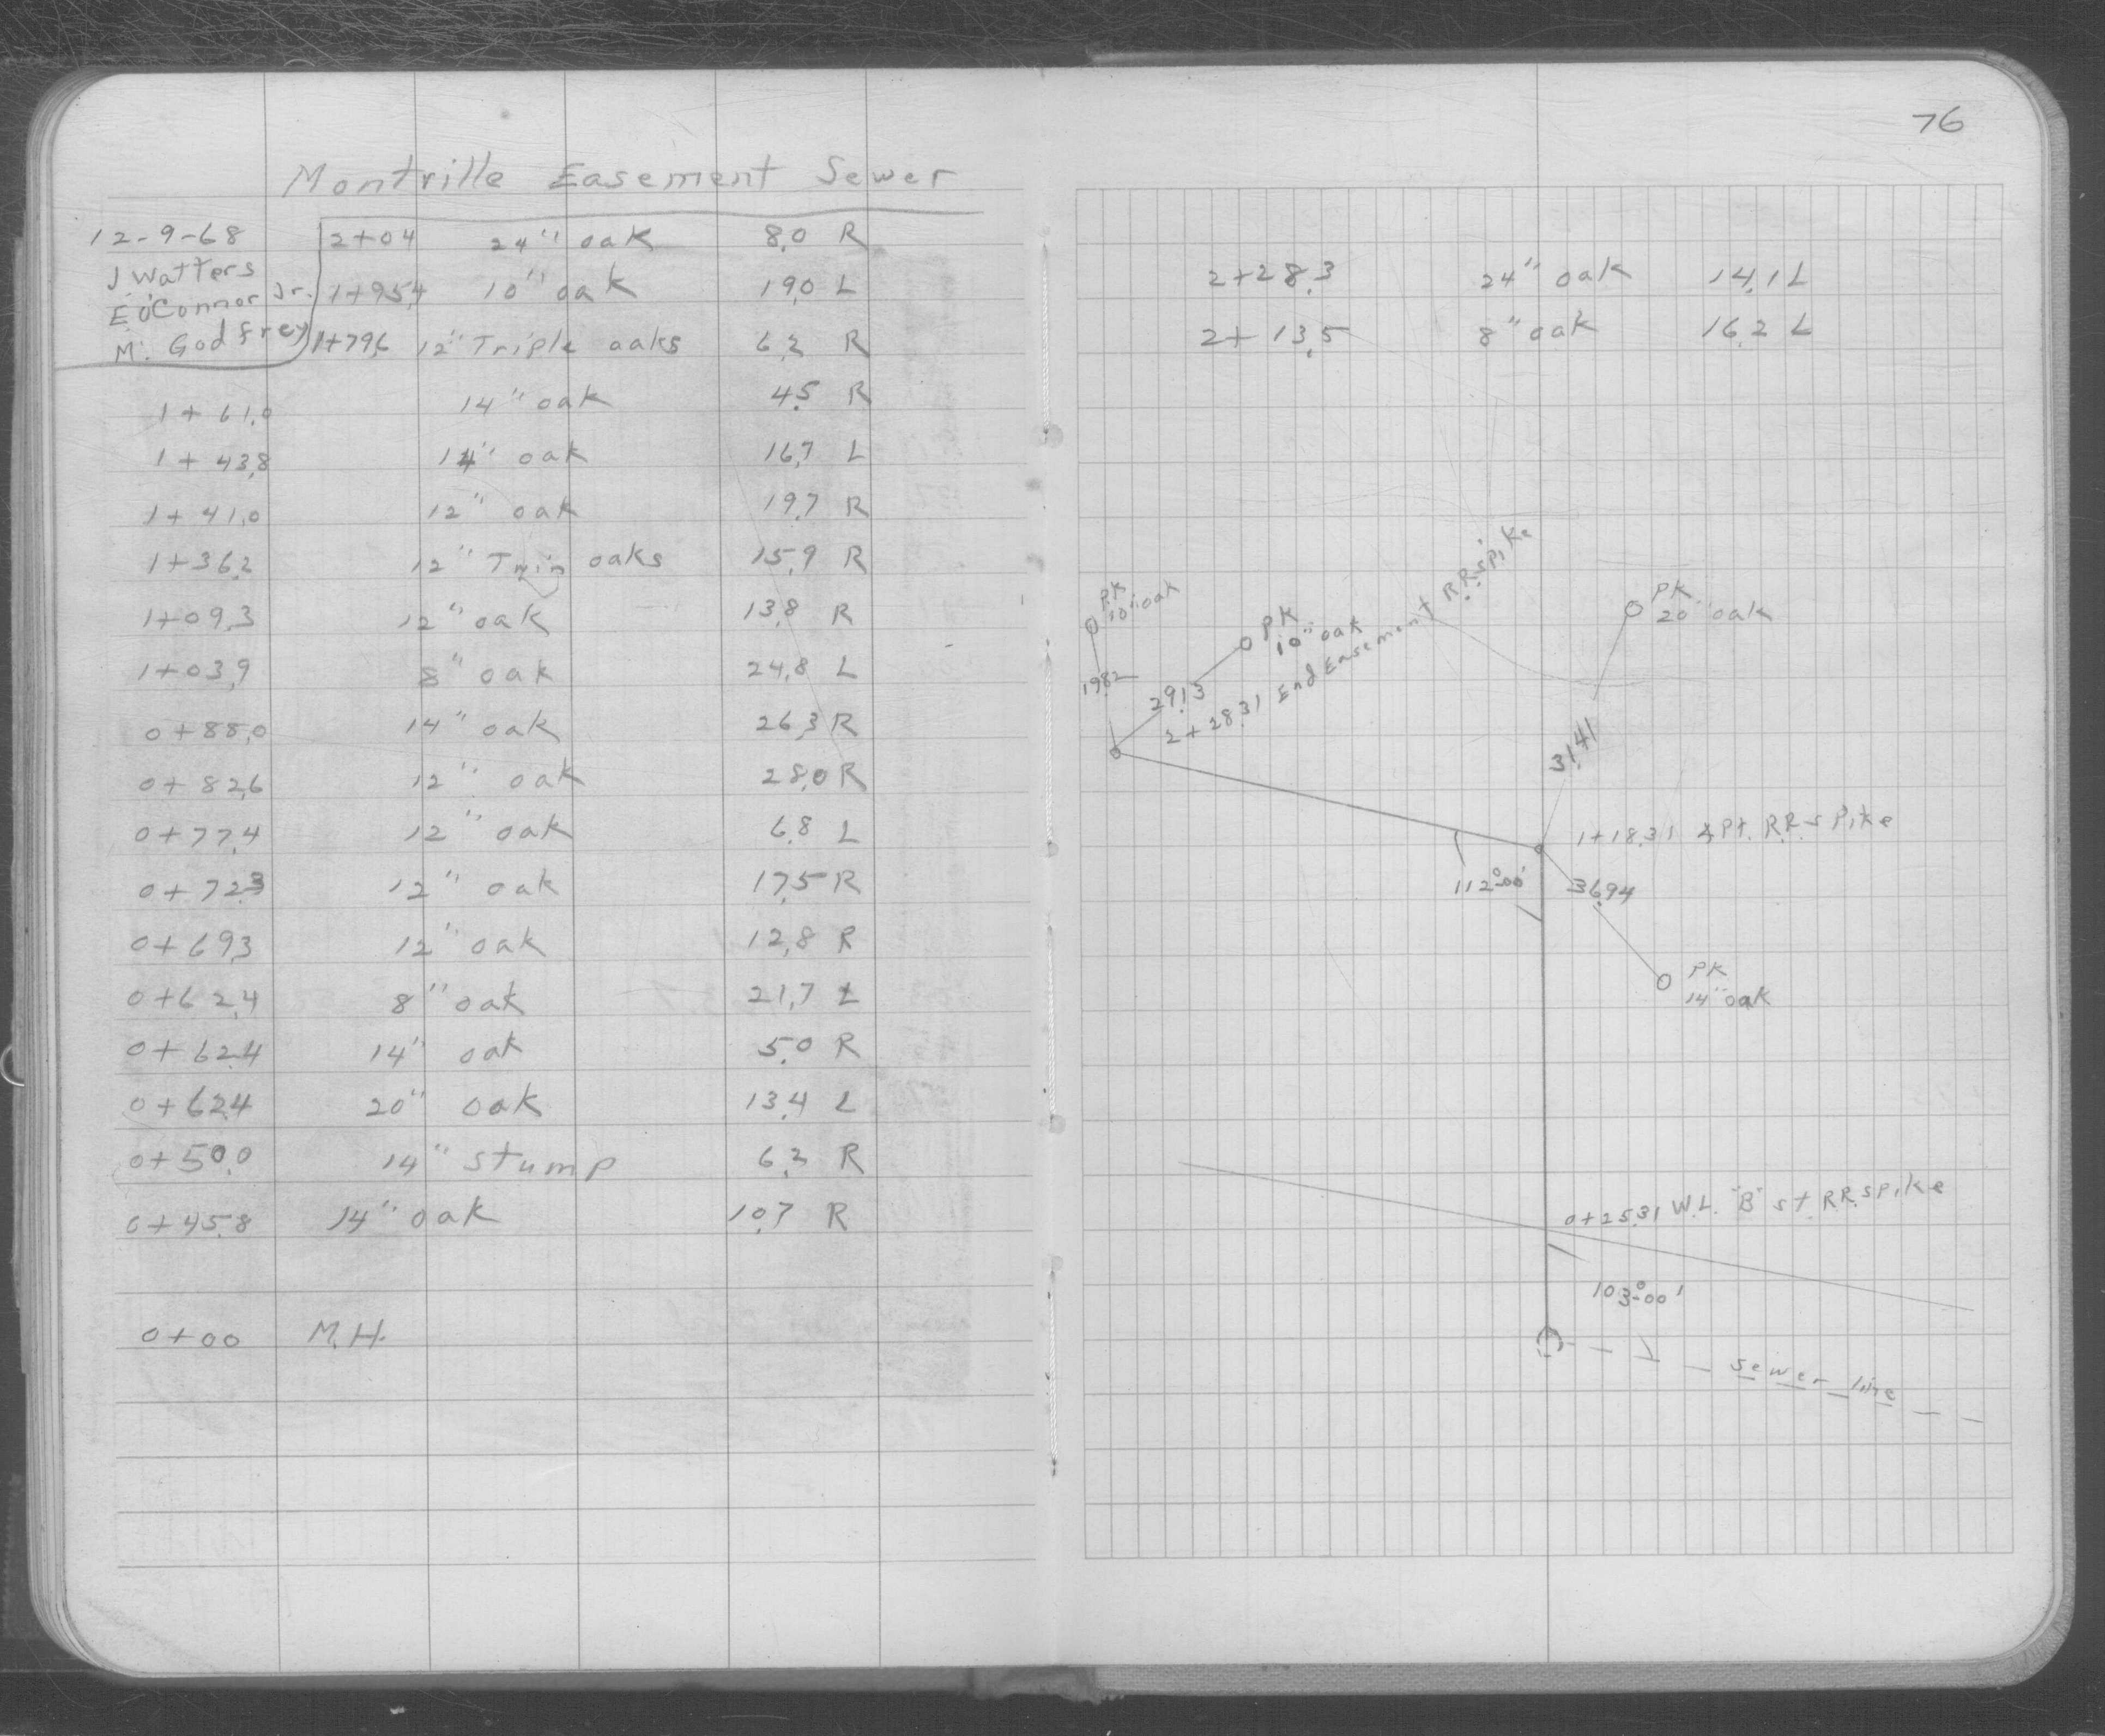 76
Montville Easement Sewer
12-9-68
J. Watters
E. O'Connor Jr.
M. Godfrey
2+04 24" oak 8.0 R
1+95.4 10" oak 19.0 L
1+79.6 12" Triple oaks 6.2 R
1+61.0 14" oak 4.5 R
1+43.8 14" oak 16.7 L
1+41.0 12" oak 19.7 R
1+36.2 12" Twin oaks 15.9 R
1+09.3 12" oak 13.8 R
1+03.9 8" oak 24.8 L
0+88.0 14" oak 26.3 R
0+82.6 12" oak 28.0 R
0+77.4 12" oak 6.8 L
0+72.3 12" oak 17.5 R
0+69.3 12" oak 12.8 R
0+62.4 8" oak 21.7 L
0+62.4 14" oak 5.0 R
0+62.4 20" oak 13.4 L
0+50.0 14" stump 6.2 R
0+45.8 14" oak 10.7 R
0+00 M.H.
2+28.3 24" oak 14.1 L
2+13.5 8" oak 16.2 L
PK
10" oak
19.82
PK
10" oak
29.13
2+28.31 End Easement R.R. spike
PK
20" oak
31.41
1+18.31 ∡Pt. R.R. spike
112°-00'
36.94
PK
14" oak
0+25.31 W.L. "B" st R.R. spike
103°-00'
sewer line